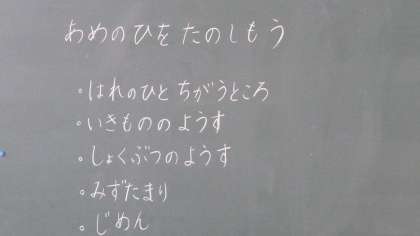 あめのひを たのしもう
・はれのひと ちがうところ
・いきもののようす
・しょくぶつのようす
・みずたまり
・じめん